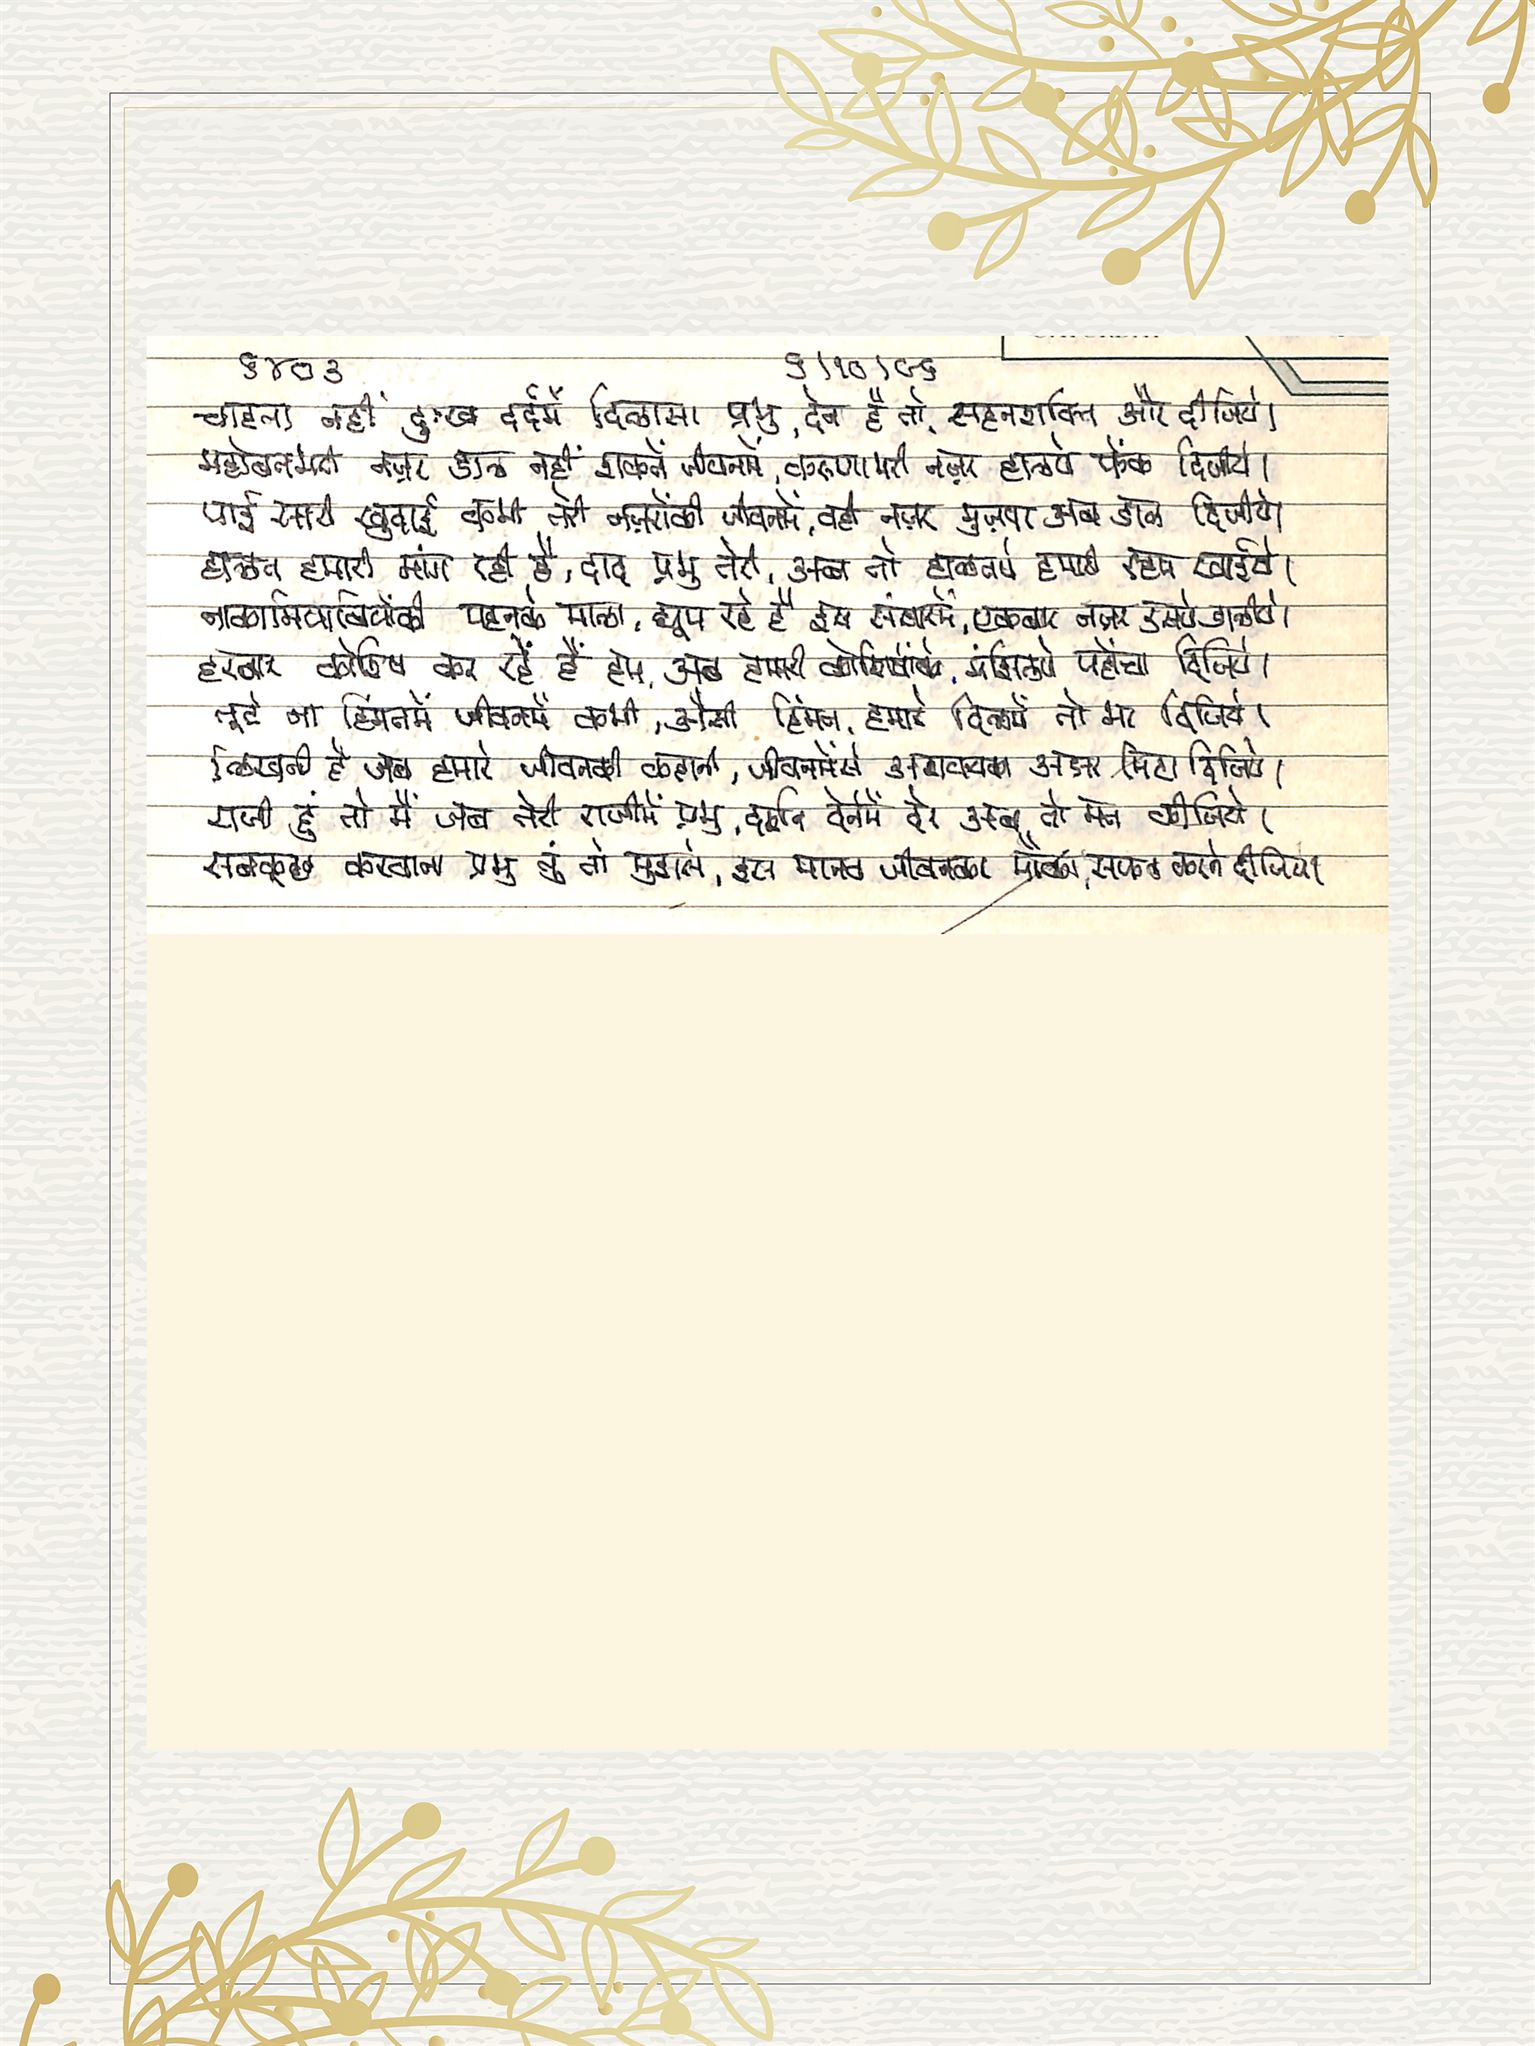 ६४०३ ६/१०/९६
चाहता नहीं दुःख दर्दमें दिलासा प्रभु, देना है तो, सहनशक्ति और दीजिये।
महोबतभरी नज़र डाल नहीं शकतें जीवनमें, करुणाभरी नज़र हालपे फेंक दिजीये।
पाई सारी खुदाई कभी तेरी नज़रोंकी जीवनमें, वही नज़र मुज़पर अब डाल दिजीये।
हालत हमारी मांग रही है, दाद प्रभु तेरी, अब तो हालतपे हमारी रहम खाईये।
नाकामियाबियोंकी पहनके माला, घूम रहे है इस संसारमें, एकबार नज़र उसपे डालीये।
हरबार कोशिष कर रहें हैं हम, अब हमारी कोशिषोंके, मंझिलपे पहोंचा दिजिये।
तूटे ना हिंमतमें जीवनमें कभी, औसी हिंमत, हमारे दिलमें तो भर दिजिये।
लिखनी है जब हमारे जीवनकी कहानी, जीवनमेंसे अक्षर मिटा दिजिये।
राजी हुं तो मैं जब तेरी राजीमें प्रभु, दर्शन देनेमें देर अब, तो मत कीजिये।
सबकूछ करवाना प्रभु तुं तो मुझसे, इस मानव जीवनका मौका, सफल करने दीजिये।